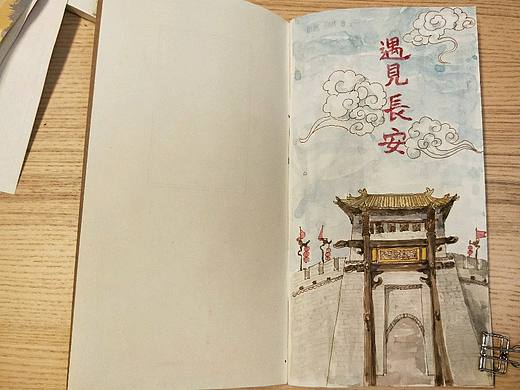 遇見長安